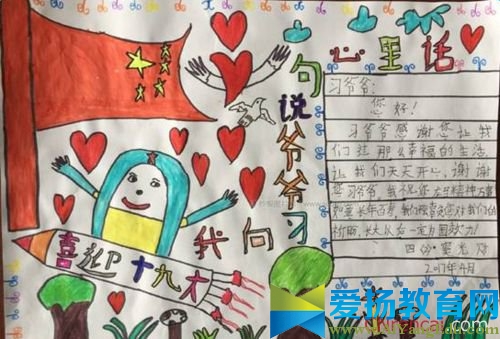 我向
习爷爷说句
心里话
喜迎十九大
习爷爷:
您好!
习爷爷感谢您让我
们过那么幸福的生活
让我们天天开心,谢谢
您习爷爷,我祝您龙马精神万事
如意长年百寿,我们 您对我们的
祈盼,长大以后一定为国效力!
2017年9月
爱扬教育网